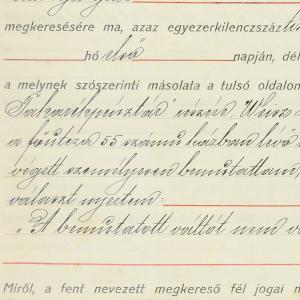 megkeresésére ma, azaz egyezerkilenczszáz
hó első napján, dél
a melynek szószerinti másolata a tulsó oldalon
Takarékpénztár" részére, Weisz
a főutcza 55 számu házban levő
végett személyesen bemutattam,
választ nyertem:
„A bemutatott váltót nem
Miről, a fent nevezett megkereső fél jogai